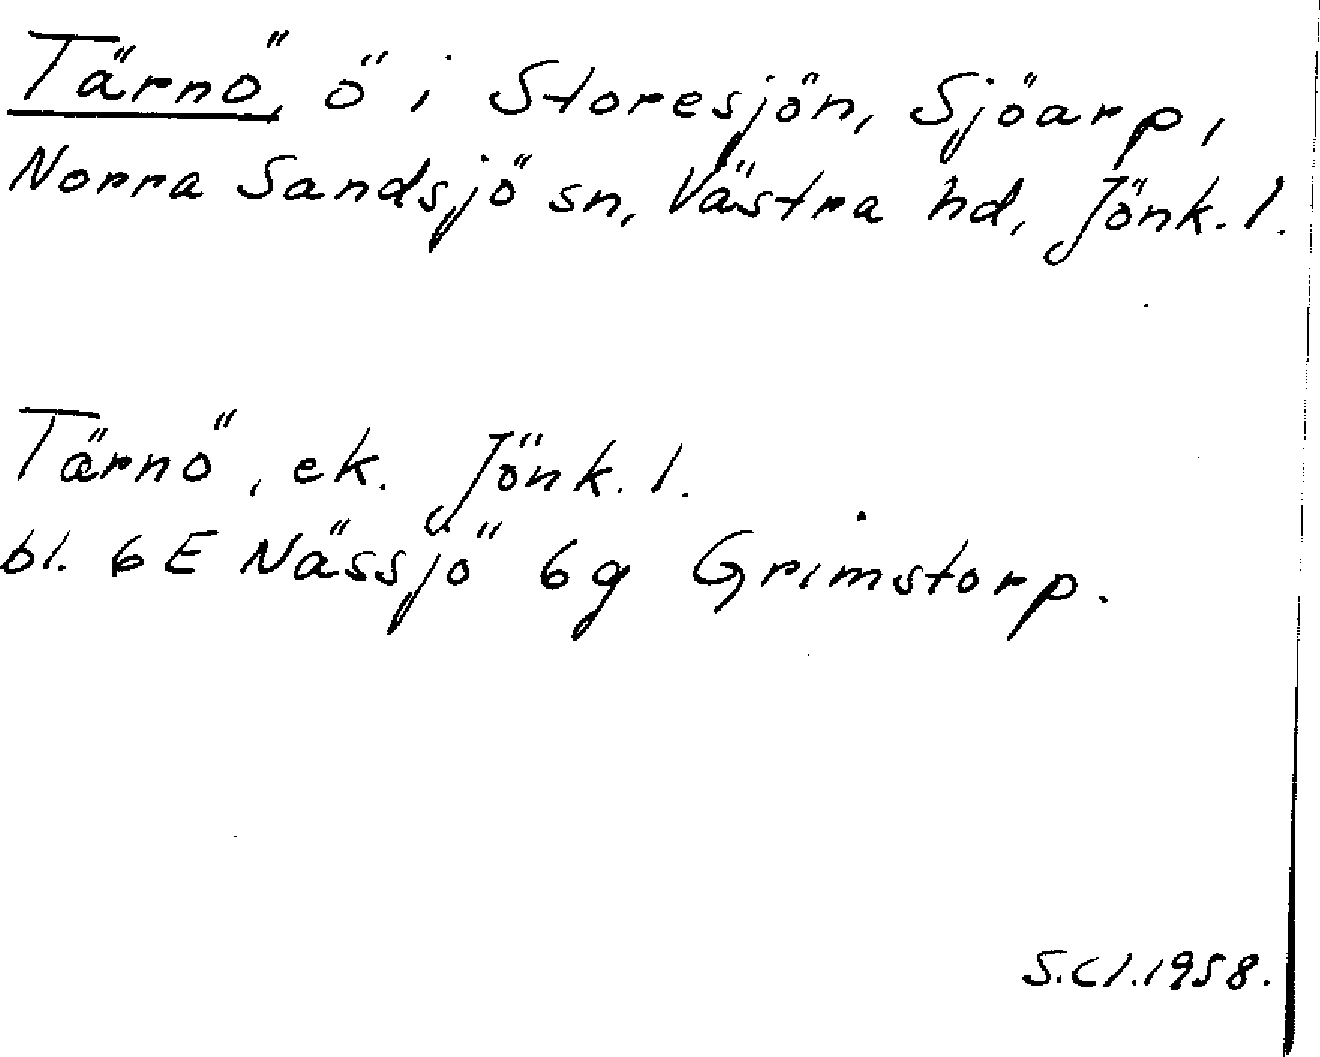 Tärnö, ö i Storesjön, Sjöarp,
Norra Sandsjö sn, Västra hd, Jönk. l.
Tärnö, ek. Jönk. l.
bl. 6E Nässjö 6g Grimstorp.
S.Cl.1958.